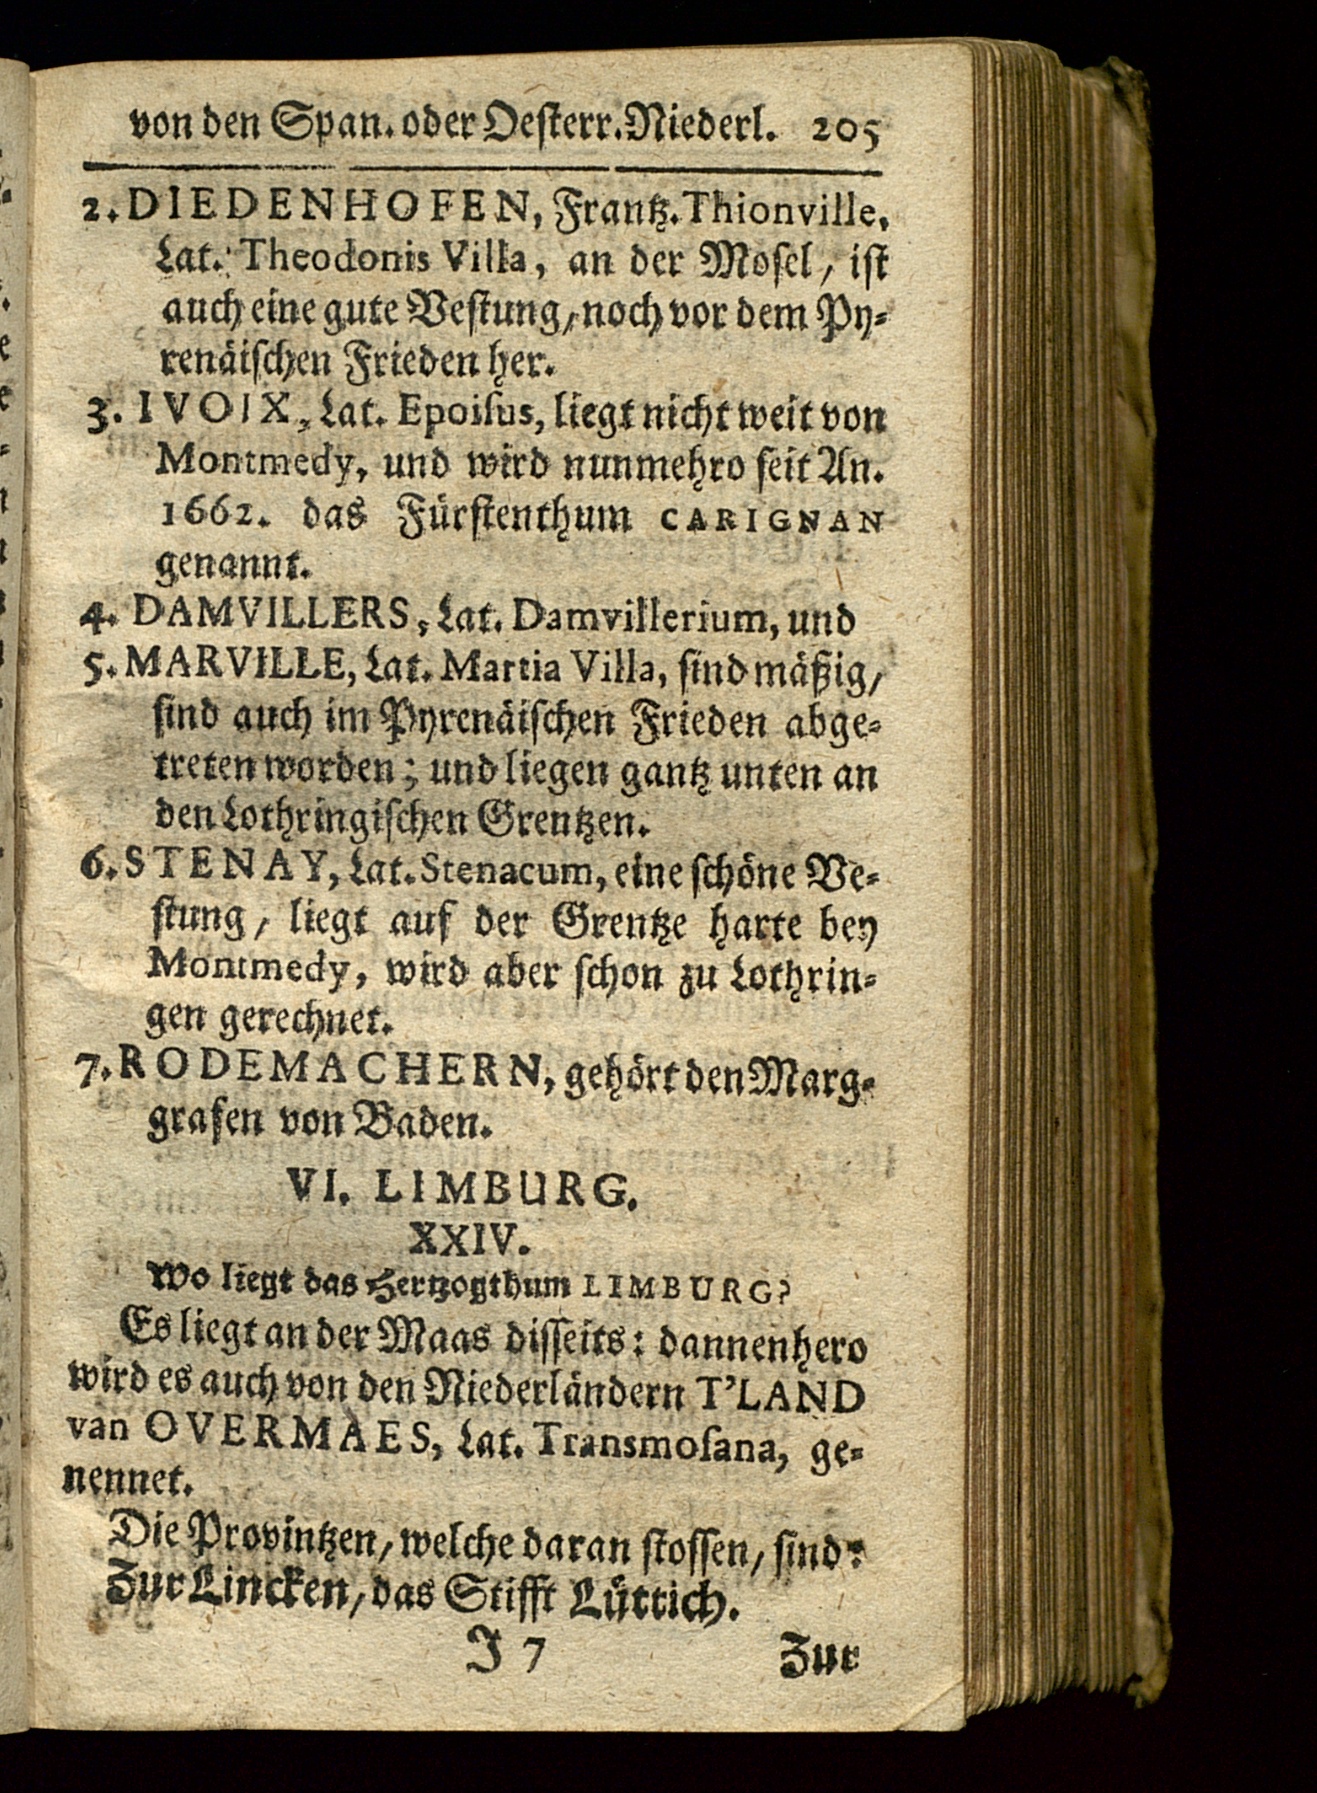 von den Span. oder Oesterr. Niederl. 205
2. DIEDENHOFEN, Frantz. Thionville,
Lat. Theodonis Villa, an der Mosel, ist
auch eine gute Vestung, noch vor dem Py-
renäischen Frieden her.
3. IVOIX, Lat. Epoisus, liegt nicht weit von
Montmedy, und wird nunmehro seit An.
1662. das Fürstenthum CARIGNAN
genannt.
4. DAMVILLERS, Lat. Damvillerium, und
5. MARVILLE, Lat. Martia Villa, sind mäßig,
sind auch im Pyrenäischen Frieden abge-
treten worden; und liegen gantz unten an
den Lothringischen Grentzen.
6. STENAY, Lat. Stenacum, eine schöne Ve-
stung, liegt auf der Grentze harte bey
Montmedy, wird aber schon zu Lothrin-
gen gerechnet.
7. RODEMACHERN, gehört den Marg-
grafen von Baden.
VI. LIMBURG.
XXIV.
Wo liegt das Hertzogthum LIMBURG?
Es liegt an der Maas disseits: dannenhero
wird es auch von den Niederländern T'LAND
van OVERMAES, Lat. Transmosana, ge-
nennet.
Die Provintzen, welche daran stossen, sind:
Zur Lincken, das Stifft Lüttich.
J 7 Zur